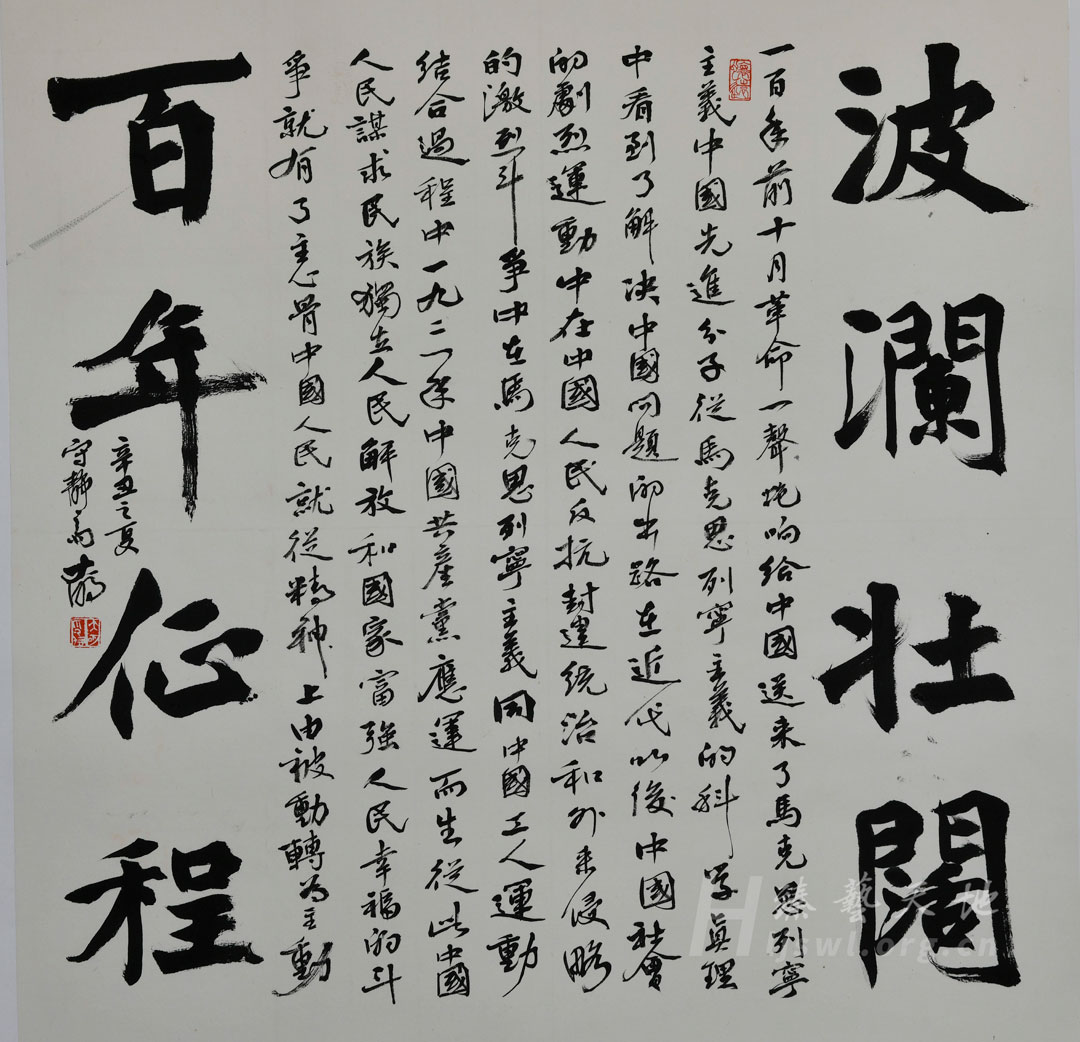 波瀾壯闊
一百年前十月革命一聲炮响給中國送来了馬克思列寧
主義中國先進分子從馬克思列寧主義的科学真理
中看到了解决中國问题的出路在近代以後中國社會
的劇烈運動中在中國人民反抗封建统治和外来侵略
的激烈斗爭中在馬克思列寧主義同中國工人運動
结合過程中一九二一年中國共產黨應運而生從此中國
人民謀求民族獨立人民解放和國家富强人民幸福的斗
爭就有了主心骨中國人民就從精神上由被動轉为主動
百年征程
辛丑之夏
守靜斋
H 臻藝天地
yswl.org.cn